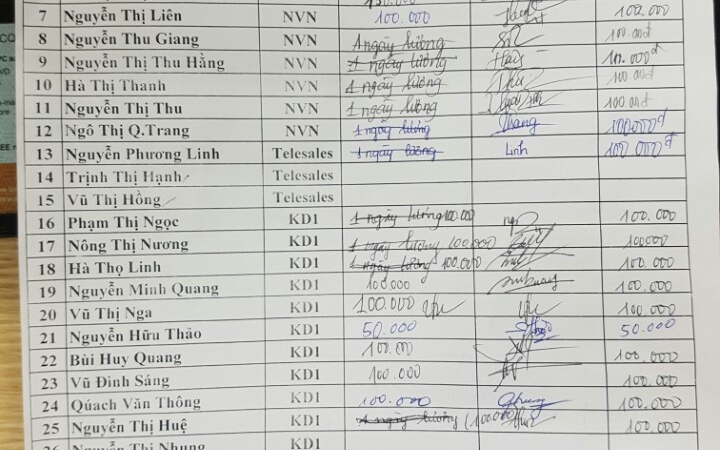 7 Nguyễn Thị Liên NVN 100.000 100.000
8 Nguyễn Thu Giang NVN 1 ngày lương 100.000đ
9 Nguyễn Thị Thu Hằng NVN 1 ngày lương Hằng 100.000đ
10 Hà Thị Thanh NVN 1 ngày lương 100.000đ
11 Nguyễn Thị Thu NVN 1 ngày lương 100.000đ
12 Ngô Thị Q.Trang NVN 1 ngày lương Trang 100.000đ
13 Nguyễn Phương Linh Telesales 1 ngày lương Linh 100.000đ
14 Trịnh Thị Hạnh Telesales
15 Vũ Thị Hồng Telesales
16 Phạm Thị Ngọc KD1 1 ngày lương 100.000 100.000
17 Nông Thị Nương KD1 1 ngày lương 100.000 100000
18 Hà Thọ Linh KD1 1 ngày lương 100.000 100.000
19 Nguyễn Minh Quang KD1 100.000 100.000
20 Vũ Thị Nga KD1 100.000 100.000
21 Nguyễn Hữu Thảo KD1 50.000 50.000
22 Bùi Huy Quang KD1 100.000 100.000
23 Vũ Đình Sáng KD1 100.000 100.000
24 Qúach Văn Thông KD1 100.000 100.000
25 Nguyễn Thị Huệ KD1 1 ngày lương (100.000) 100.000
26 Nguyễn Thị Nhung KD1